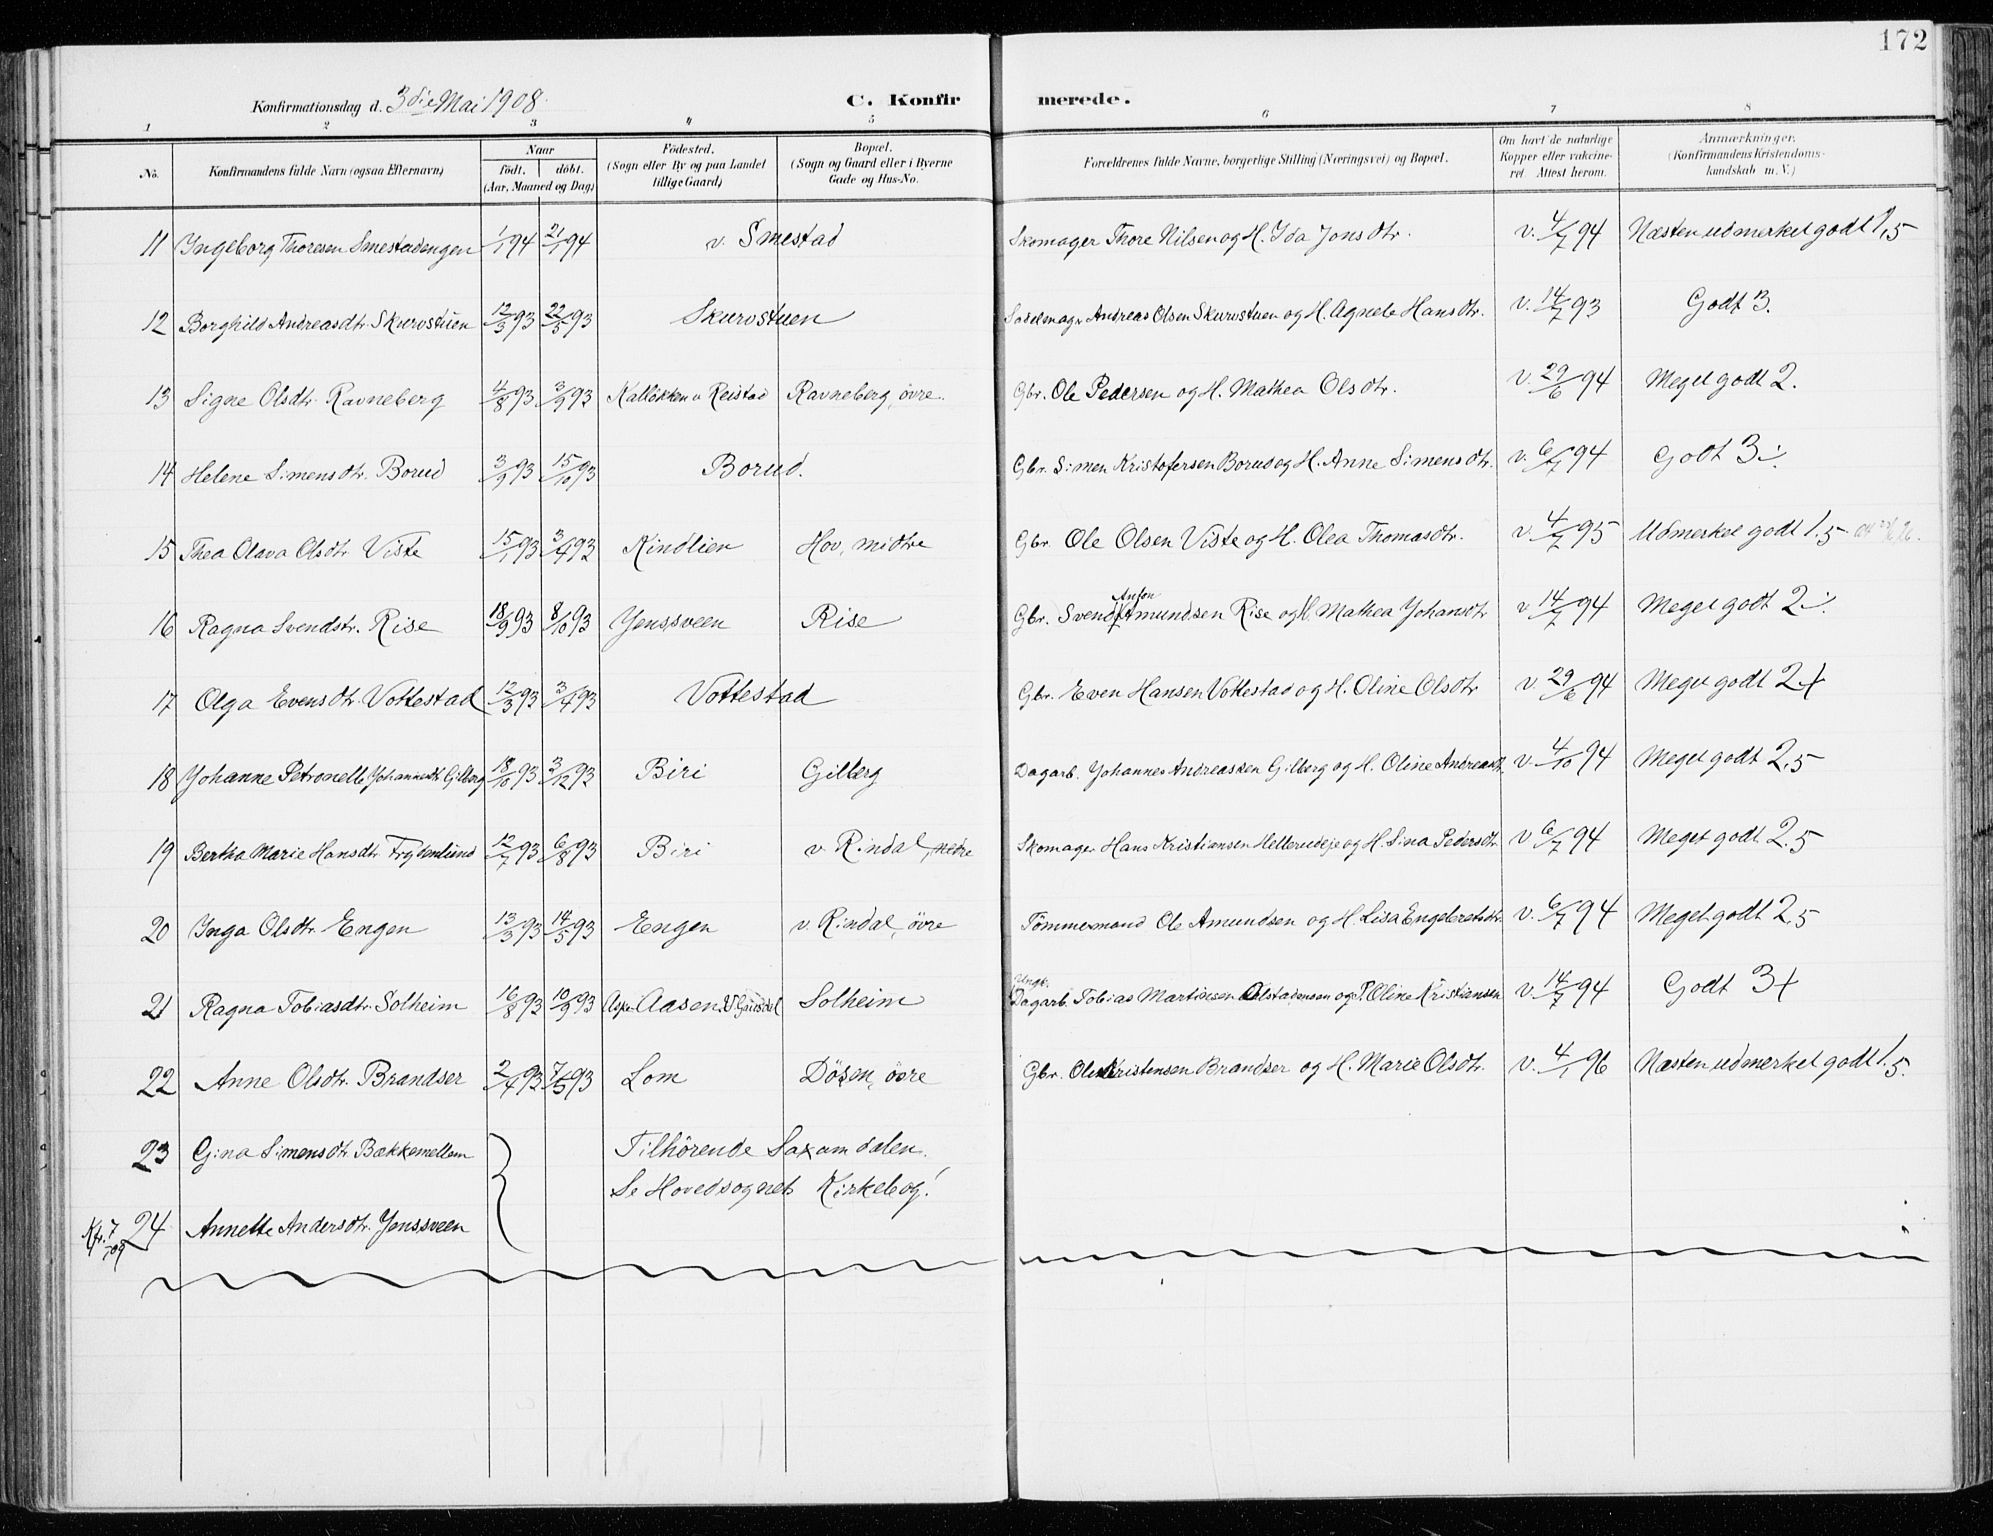 172
Konfirmationsdag d. 3die Mai 1908.
C. Konfirmerede.
1 2 3 4 5 6 7 8
No. Konfirmandens fulde Navn (ogsaa Efternavn) Naar født. døbt. (Aar, Maaned og Dag) Fødested. (Sogn eller By og paa Landet tillige Gaard) Bopæl. (Sogn og Gaard eller i Byerne Gade og Hus-No. Forældrenes fulde Navne, borgerlige Stilling (Næringsvei) og Bopæl. Om havt de naturlige Kopper eller vakcineret. Attest herom. Anmærkninger. (Konfirmandens Kristendomskundskab m. V.)
11 Ingeborg Thoresen Smestadengen 1/1 94 21/1 94 v. Smestad Skomager Thore Nilsen og H. Ida Jonsdtr. v. 4/7 94 Næsten udmerket godt 1,5
12 Borghild Andreasdtr. Skurvstuen 12/3 93 22/5 93 Skurvstuen Sadelmagr Andreas Olsen Skurvstuen og H. Agnete Hansdtr. v. 14/7 93 Godt 3.
13 Signe Olsdtr. Ravneberg 4/8 93 3/9 93 Kalløkken u Reistad Ravneberg, øvre. Gbr. Ole Pedersen og H. Mathea Olsdtr. v. 29/6 94 Meget godt 2.
14 Helene Simensdtr. Borud 3/9 93 15/10 93 Borud. Gbr. Simen Kristofersen Borud og H. Anne Simensdtr. v. 6/7 94 Godt 3 ÷.
15 Thea Olava Olsdtr. Viste 15/1 93 3/4 93 Kindlien Hov, midtre Gbr. Ole Olsen Viste og H. Olea Thomasdtr. v. 4/7 95 Udmerket godt 1.5
16 Ragna Svendstr. Rise 18/9 93 8/10 93 Jenssveen Rise Gbr. Svend Anton Amundsen Rise og H. Mathea Johansdtr v 14/7 94 Meget godt 2 ÷.
17 Olga Evensdtr. Vottestad 12/3 93 3/4 93 Vottestad Gbr. Even Hansen Vottestad og H. Oline Olsdtr v. 29/6 94 Meget godt 2+
18 Johanne Petronelle Johannesdtr. Gilberg 18/10 93 3/12 93 Biri Gilberg Dagarb. Johannes Andreassen Gilberg og H. Oline Andreasdt. v. 4/10 94 Meget godt 2.5
19 Bertha Marie Hansdtr. Frydenlund 12/7 93 6/8 93 Biri v. Rindal, nedre Skomager Hans Kristiansen Hellerudeje og H. Sina Pedersdtr. v 6/7 94 Meget godt 2.5
20 Inga Olsdtr. Engen 13/3 93 14/5 93 Engen v. Rindal, øvre Tømmermand Ole Amundsen og H. Lisa Engebretsdtr. v. 6/7 94 Meget godt 2.5
21 Ragna Tobiasdtr. Solheim 16/8 93 10/9 93 Aasen V. Gausdal Solheim Ungk. Dagarb. Tobias Martinsen Olstadensen og P. Oline Kristiansen v. 14/7 94 Godt 3+
22 Anne Olsdtr. Brandser 2/4 93 7/5 93 Lom Døsen, øvre Gbr. Ole Kristensen Brandser og H. Marie Olsdtr. v. 4/1 96 Næsten udmerket godt 1.5.
23 Gina Simensdtr. Bækkemellem Tilhørende Saxumdalen.
Se Hovedsognets Kirkebog!
Kfr. 7/09 24 Annette Andersdtr. Jenssveen